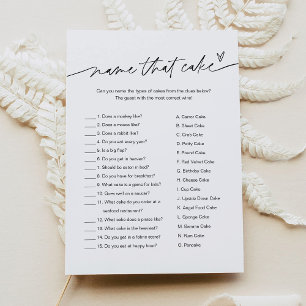 name that cake
Can you name the types of cakes from the clues below?
The guest with the most correct wins!
1. Does a monkey like?
2. Does a mouse like?
3. Does a rabbit like?
4. Do you eat every year?
5. Is a big flop?
6. Do you get in heaven?
7. Should be eaten in bed?
8. Do you have for breakfast?
9. What cake is a game for kids?
10. Goes well on a saucer?
11. What cake do you order at a
seafood restaurant?
12. What cake does a pirate like?
13. What cake is the heaviest?
14. Do you get in a fabric store?
15. Do you eat at happy hour?
A. Carrot Cake
B. Sheet Cake
C. Crab Cake
D. Patty Cake
E. Pound Cake
F. Red Velvet Cake
G. Birthday Cake
H. Cheese Cake
I. Cup Cake
J. Upside Down Cake
K. Angel Food Cake
L. Sponge Cake
M. Banana Cake
N. Rum Cake
O. Pancake